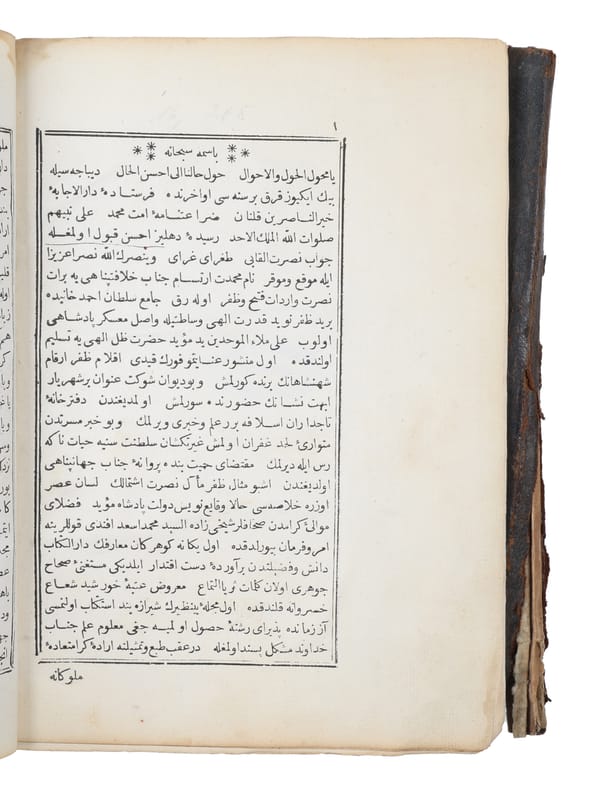 ١
باسمه سبحانه
يامحول الحول والاحوال حول حالنا الى احسن الحال ديباجه سيله
بيك ايكيوز قرق بر سنه سى اواخرنده فرستادهٔ دار الاجابهٔ
خير الناصرين قلنان ضراعتنامهٔ امت محمد على نبيهم
صلوات الله الملك الاحد رسيدهٔ دهليز احسن قبول اولمغله
جواب نصرت القابى طغراى غراى وينصرك الله نصرا عزيزا
ايله موقع وموقر نام محمدت ارتسام جناب خلافتپناهى يه برات
نصرت واردات فتح وظفر اوله رق جامع سلطان احمد خانيده
بريد ظفر نويد قدرت الهى وساطتيله واصل معسكر پادشاهى
اولوب على ملاء الموحدين يد مؤيد حضرت ظل الهى يه تسليم
اولندقده اول منشور عنايتموفورك قيدى اقلام ظفر ارقام
شهنشاهانك برنده كورلمش وبوديوان شوكت عنوان برشهريار
ابهت نشانك حضورنده سورلمش اولمديغندن دفترخانهٔ
تاجداران اسلافه بر علم وخبرى ويرلمك وبو خبر مسرتدن
متوارىٔ لحد غفران اولمش غيرتكشان سلطنت سنيه حيات تاكه
رس ايله ديرلمك مقتضاى حميت بنده پروانهٔ جناب جهانپناهى
اولديغندن اشبو مثال ظفر مآل نصرت اشتمالك لسان عصر
اوزره خلاصه سى حالا وقايع نويس دولت پادشاه مؤيد فضلاى
موالىٔ كرامدن صحافلر شيخى زاده السيد محمد اسعد افندى قوللرينه
امر وفرمان بيورلدقده اول يكانه كوهر كان معارفك دار الكتاب
دانش وفضيلتندن برآوردهٔ دست اقتدار ايلديكى مستغنىٔ صحاح
جوهرى اولان كلمات ثريا التماع معروض عتبهٔ خورشيد شعاع
خسروانه قلندقده اول مجلهٔ بينظيرك شيرازه بند استكتاب اولنمسى
آز زمانده پذيراى رشتهٔ حصول اولميه جغى معلوم علم جناب
خداوند مشكل پسند اولمغله در عقب طبع وتمثيلنه ارادهٔ كرامتعادهٔ
ملوكانه